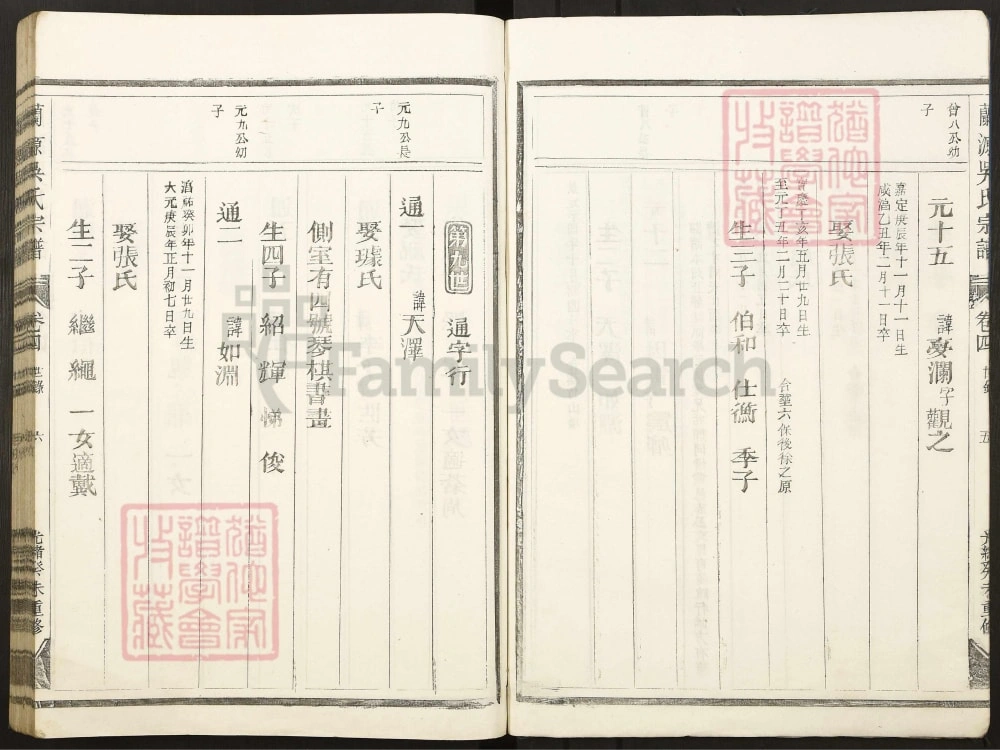 蘭源吳氏宗譜 卷四 世錄 五 光緒癸未重修
曾八公幼子
元十五 諱憂瀾字觀之
嘉定庚辰年十一月十一日生
咸淳乙丑年二月十一日卒
娶張氏
寶慶丁亥年五月廿九日生
至元丁丑年二月二十日卒
合塟六保後徐之原
生三子 伯和 仕衡 季子
第九世 通字行
元九公長子
通一 諱天澤
娶璩氏
側室有四號琴棋書畫
生四子 紹 輝 悌 俊
元九公幼子
通二 諱如淵
淳祐癸卯年十一月廿九日生
大元庚辰年正月初七日卒
娶張氏
生二子 繼 繩 一女適戴
蘭源吳氏宗譜 卷四 世錄 六 光緒癸未重修
猶他家譜學會收藏
猶他家譜學會收藏
FamilySearch